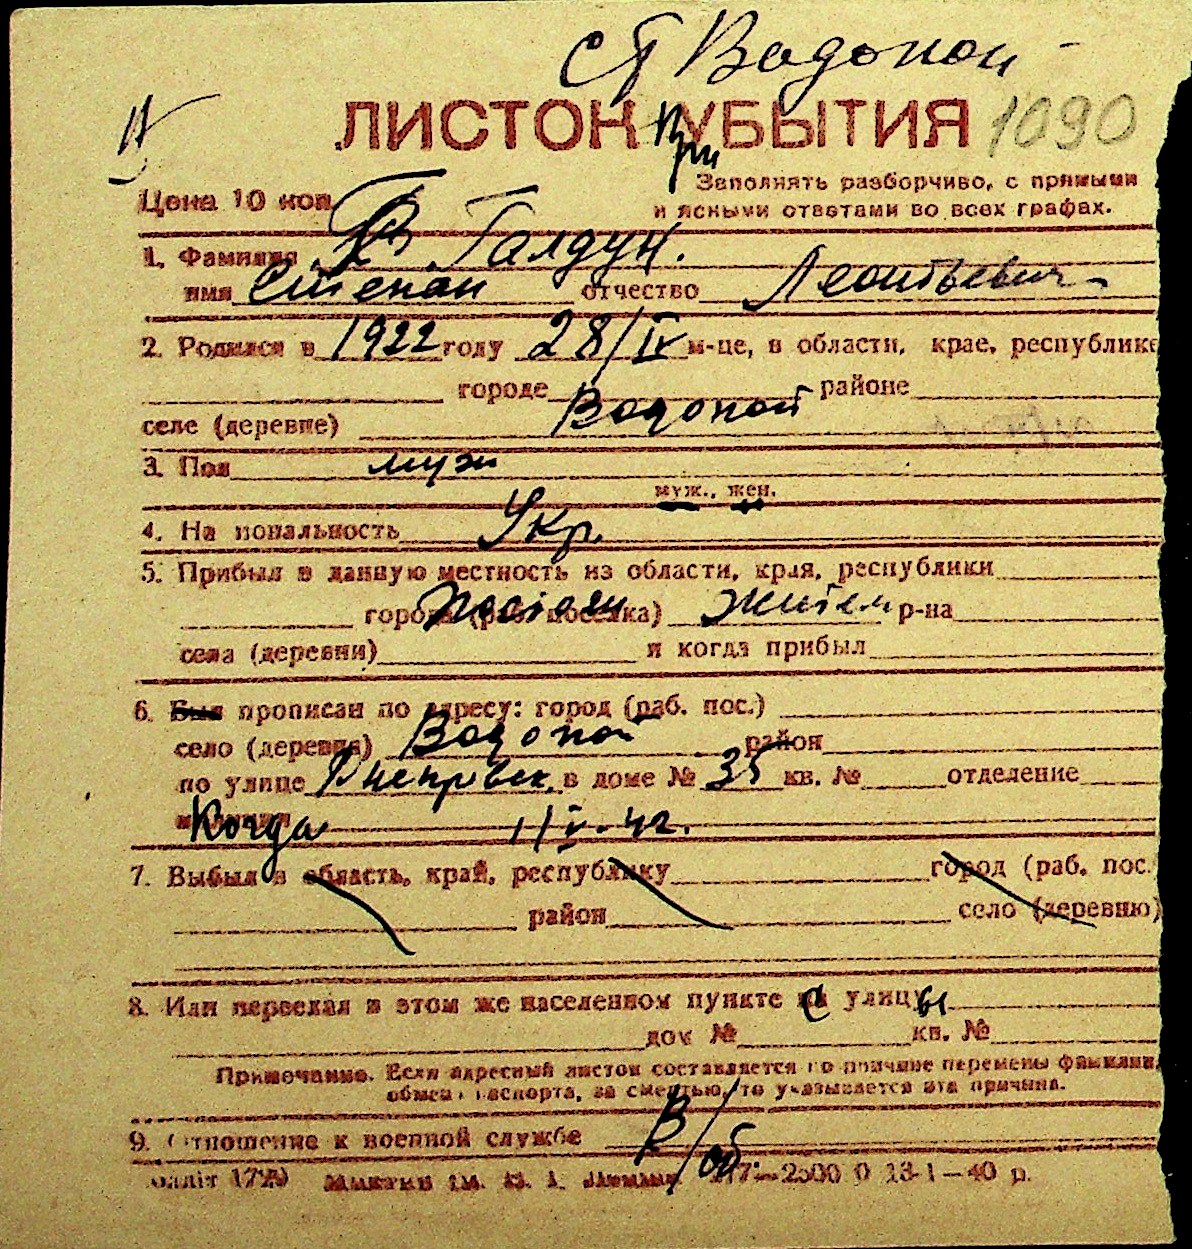 ст Водопой
ЛИСТОК При УБЫТИЯ 1090
Цена 10 коп. Заполнять разборчиво, с прямыми
и ясными ответами во всех графах.
1. Фамилия Галдун.
имя Степан отчество Леонтьевич
2. Родился в 1922 году 28/IV м-це, в области, крае, республике
городе районе
селе (деревне) Водопой
3. Пол муж
муж., жен.
4. Национальность Укр.
5. Прибыл в данную местность из области, края, республики
города (раб. поселка) Житем р-на
села (деревни) и когда прибыл
6. Был прописан по адресу: город (раб. пос.)
село (деревня) Водопой район
по улице Днепровск. в доме № 35 кв. № отделение
милиции Когда 1/V-42.
7. Выбыл в область, край, республику город (раб. пос.
район село (деревню)
8. Или переехал в этом же населенном пункте с улицы
дом № кв. №
Примечание. Если адресный листок составляется по причине перемены фамилии,
обмен паспорта, за смертью, то указывается эта причина.
9. Отношение к военной службе В/об.
2500 13-1—40 р.